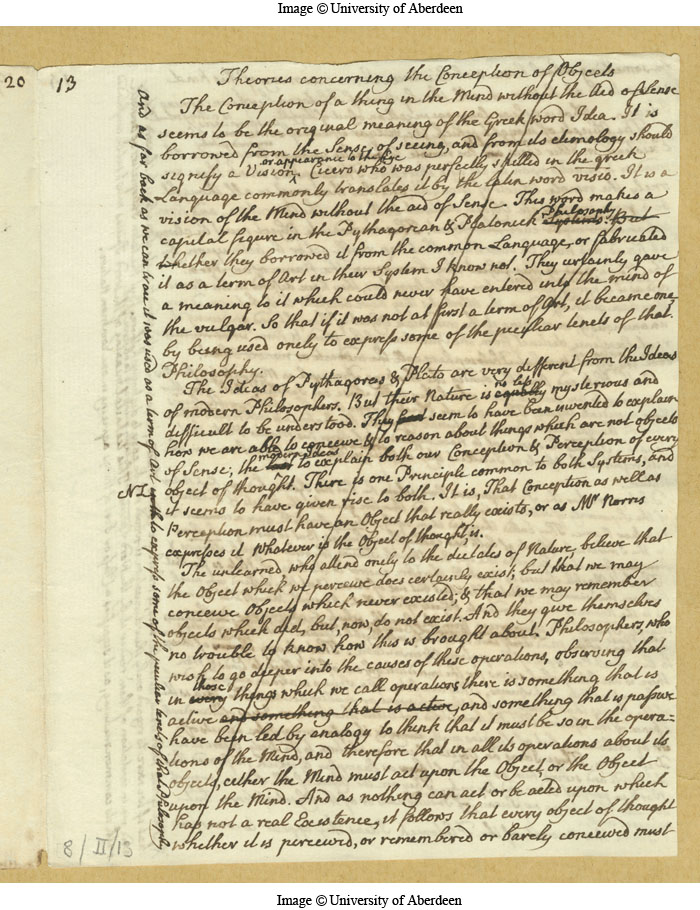 Image © University of Aberdeen
20
13
Theories concerning the Conception of Objects
The Conception of a thing in the Mind without the Aid of Sense
seems to be the original meaning of the Greek word Idea. It is
borrowed from the Sense of seeing, and from its etimology should
or appearance to the Eye
signify a Vision. Cicero who was perfectly skilled in the greek
Language commonly translates it by the latin word visio. It is a
vision of the Mind without the aid of Sense. This word makes a
Philosophy
capital figure in the Pythagorean & Platonick Systems. But
whether they borrowed it from the common Language, or fabricated
it as a term of Art in their System I know not. They certainly gave
a meaning to it which could never have entered into the mind of
the vulgar. So that if it was not at first a term of Art, it became one
by being used onely to express some of the peculiar tenets of that
Philosophy.
The Ideas of Pythagoras & Plato are very different from the Ideas
no less
of modern Philosophers. But their Nature is equally mysterious and
difficult to be understood. They seem to have been invented to explain
how we are able to conceive & to reason about things which are not objects
modern Ideas
of Sense; the last to explain both our Conception & Perception of every
object of thought. There is one Principle common to both Systems, and
it seems to have given rise to both. It is, That Conception as well as
Perception must have an Object that really exists, or as Mr Norris
expresses it Whatever is the Object of thought, is.
The unlearned who attend onely to the dictates of Nature, believe that
the Object which we perceive does certainly exist; but that we may
conceive Objects which never existed; & that we may remember
objects which did, but, now, do not exist. And they give themselves
no trouble to know how this is brought about. Philosophers, who
wish to go deeper into the causes of these operations, observing that
those
in every things which we call operations there is something that is
active and something that is active, and something that is passive
have been led by analogy to think that it must be so in the opera=
tions of the Mind, and therefore that in all its operations about its
objects, either the Mind must act upon the Object, or the Object
upon the Mind. And as nothing can act or be acted upon which
has not a real Existence, it follows that every object of thought
whether it is perceived, or remembered or barely conceived must
And as far back as we can trace it was used as a term of Art to express some of the peculiar tenets of that Philosophy
8/II/13
Image © University of Aberdeen